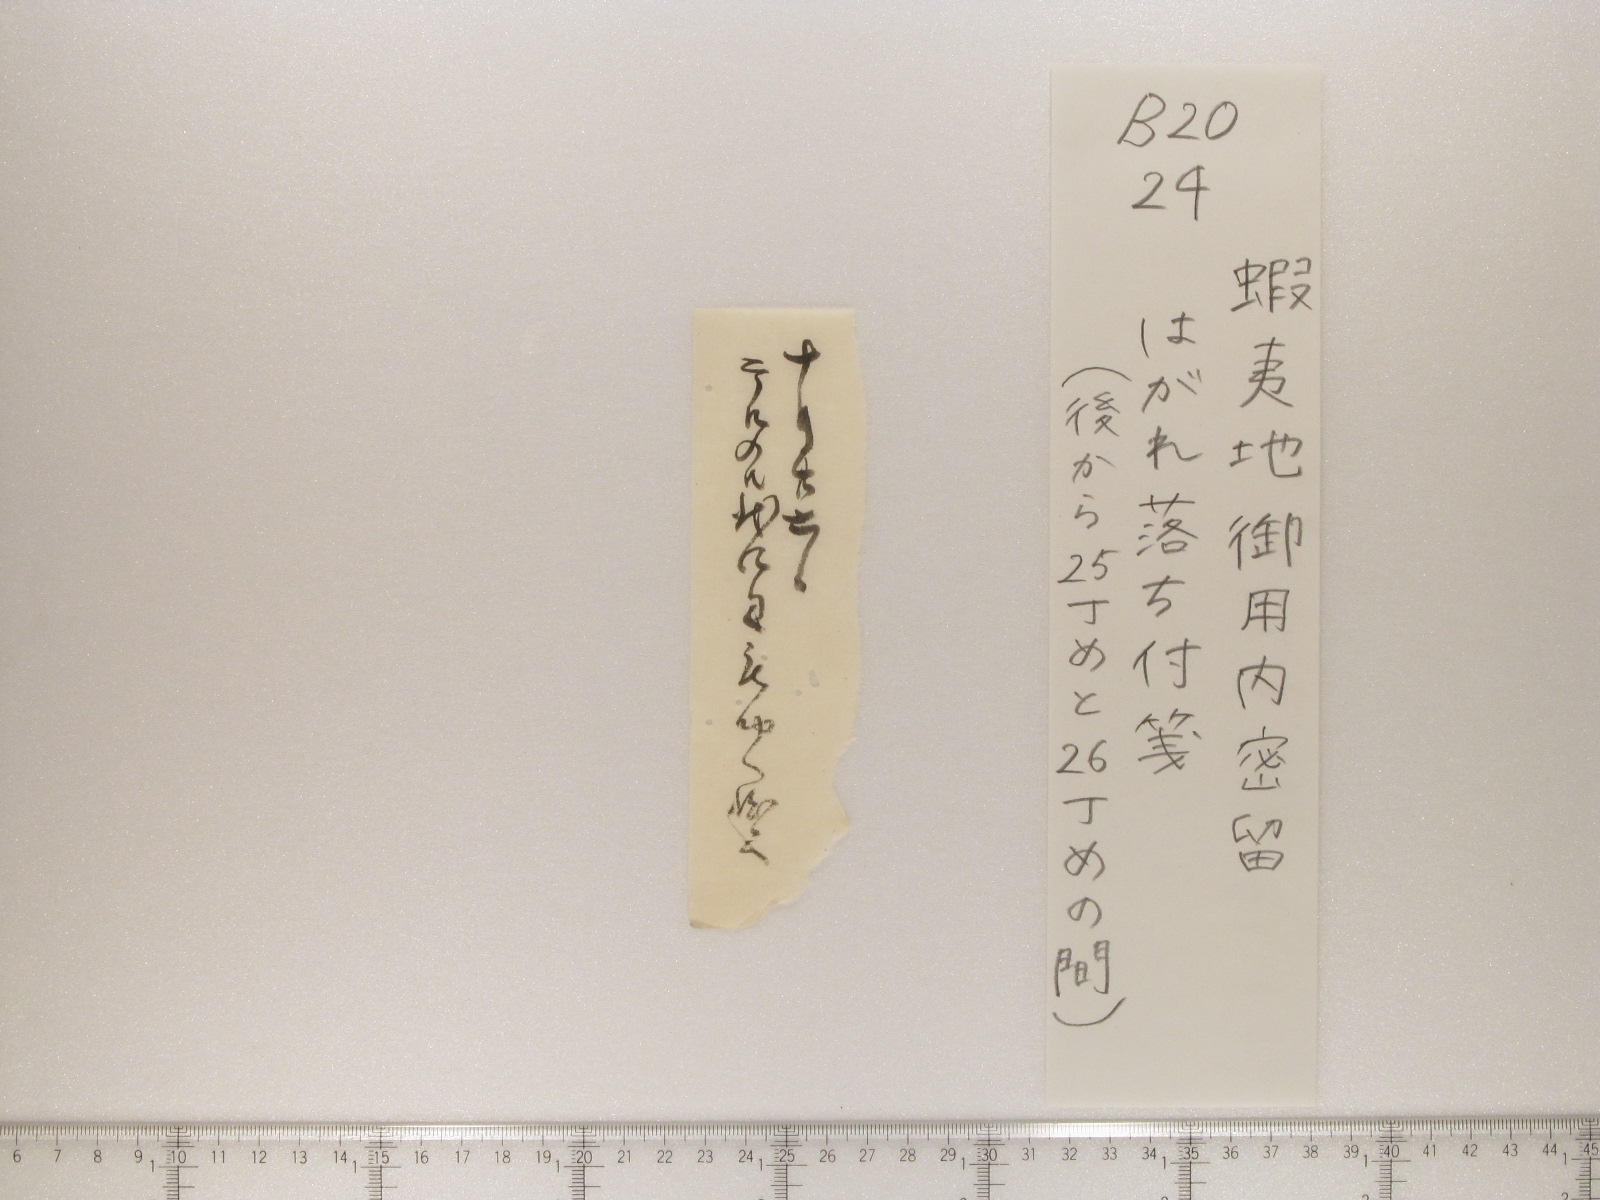 B20
24
蝦夷地御用内密留
はがれ落ち付箋
(後から25丁めと26丁めの間)
十月廿七日
6 7 8 9 10 11 12 13 14 15 16 17 18 19 20 21 22 23 24 25 26 27 28 29 30 31 32 33 34 35 36 37 38 39 40 41 42 43 44 45